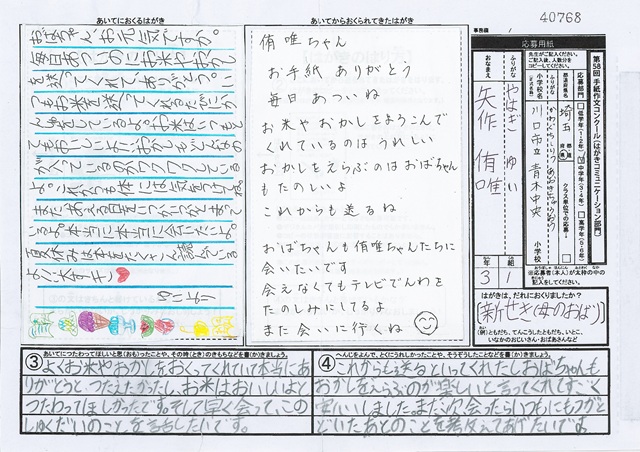 40768
あいてにおくるはがき
おばちゃんお元気ですか。
毎日あついのにお米やおかし
を送ってくれてありがとう。い
つもお米を送ってくれるたびにか
んしゃしているよ。お米はいつもと
てもおいしいよ!!おかしも
がくっているのかワクワクしている
よ。これからも体には気をつけてね。
本当に本当に会いたいよ。
夏休みは本をたくさん読んでいる
よ!!大すき
ゆいより
あいてからおくられてきたはがき
侑唯ちゃん
お手紙 ありがとう
毎日 あついね
お米や おかしをようこんで
くれているのは うれしい
おかしをえらぶのは おばちゃん
も たのしいよ
これからも 送るね
おばちゃんも侑唯ちゃんたちに
会いたいです
会えなくてもテレビでんわを
たのしみにしてるよ
また 会いに 行くね
事務欄
応募用紙
先生がご記入ください。
ご記入後、人数分を
コピーしてください。
第58回 手紙作文コンクール(はがきコミュニケーション部門)
応募部門
低学年(1・2年)
中学年(3・4年)
高学年(5・6年)
都道府県名
埼玉
都道府県
クラス単位での応募
ふりがな
小学校名
(正式名称)
川口市立 青木中央
小学校
ふりがな
やはぎ ゆい
おなまえ
矢作 侑唯
年 3
組 1
※応募者(本人)が太枠の中の
記入をしてください。
はがきは、だれにおくりましたか?
新せき(母のおば)
(例)ともだち、てんこうしたともだち、いとこ、
いなかのおじいさん・おばあさんなど
③
あいてにつたわってほしいと思(おも)ったことや、その時(とき)のきもちなどを書(か)きましょう。
よくお米やおかしをおくってくれていて本当にあ
りがとうと、つたえたかったし、お米はおいしいよと
つたわってほしかったです。そして早く会って、この
しゅくだいのことを言いたいです。
④
へんじをよんで、とくにうれしかったことや、そうぞうしたことなどを書(か)きましょう。
これからも送るといってくれたし、おばちゃんも
おかしをえらぶのが楽しいと言ってくれてすごく
安心しました。また、次会ったらいつもにもつがと
どいたあとのことを考えてあげたいですよ